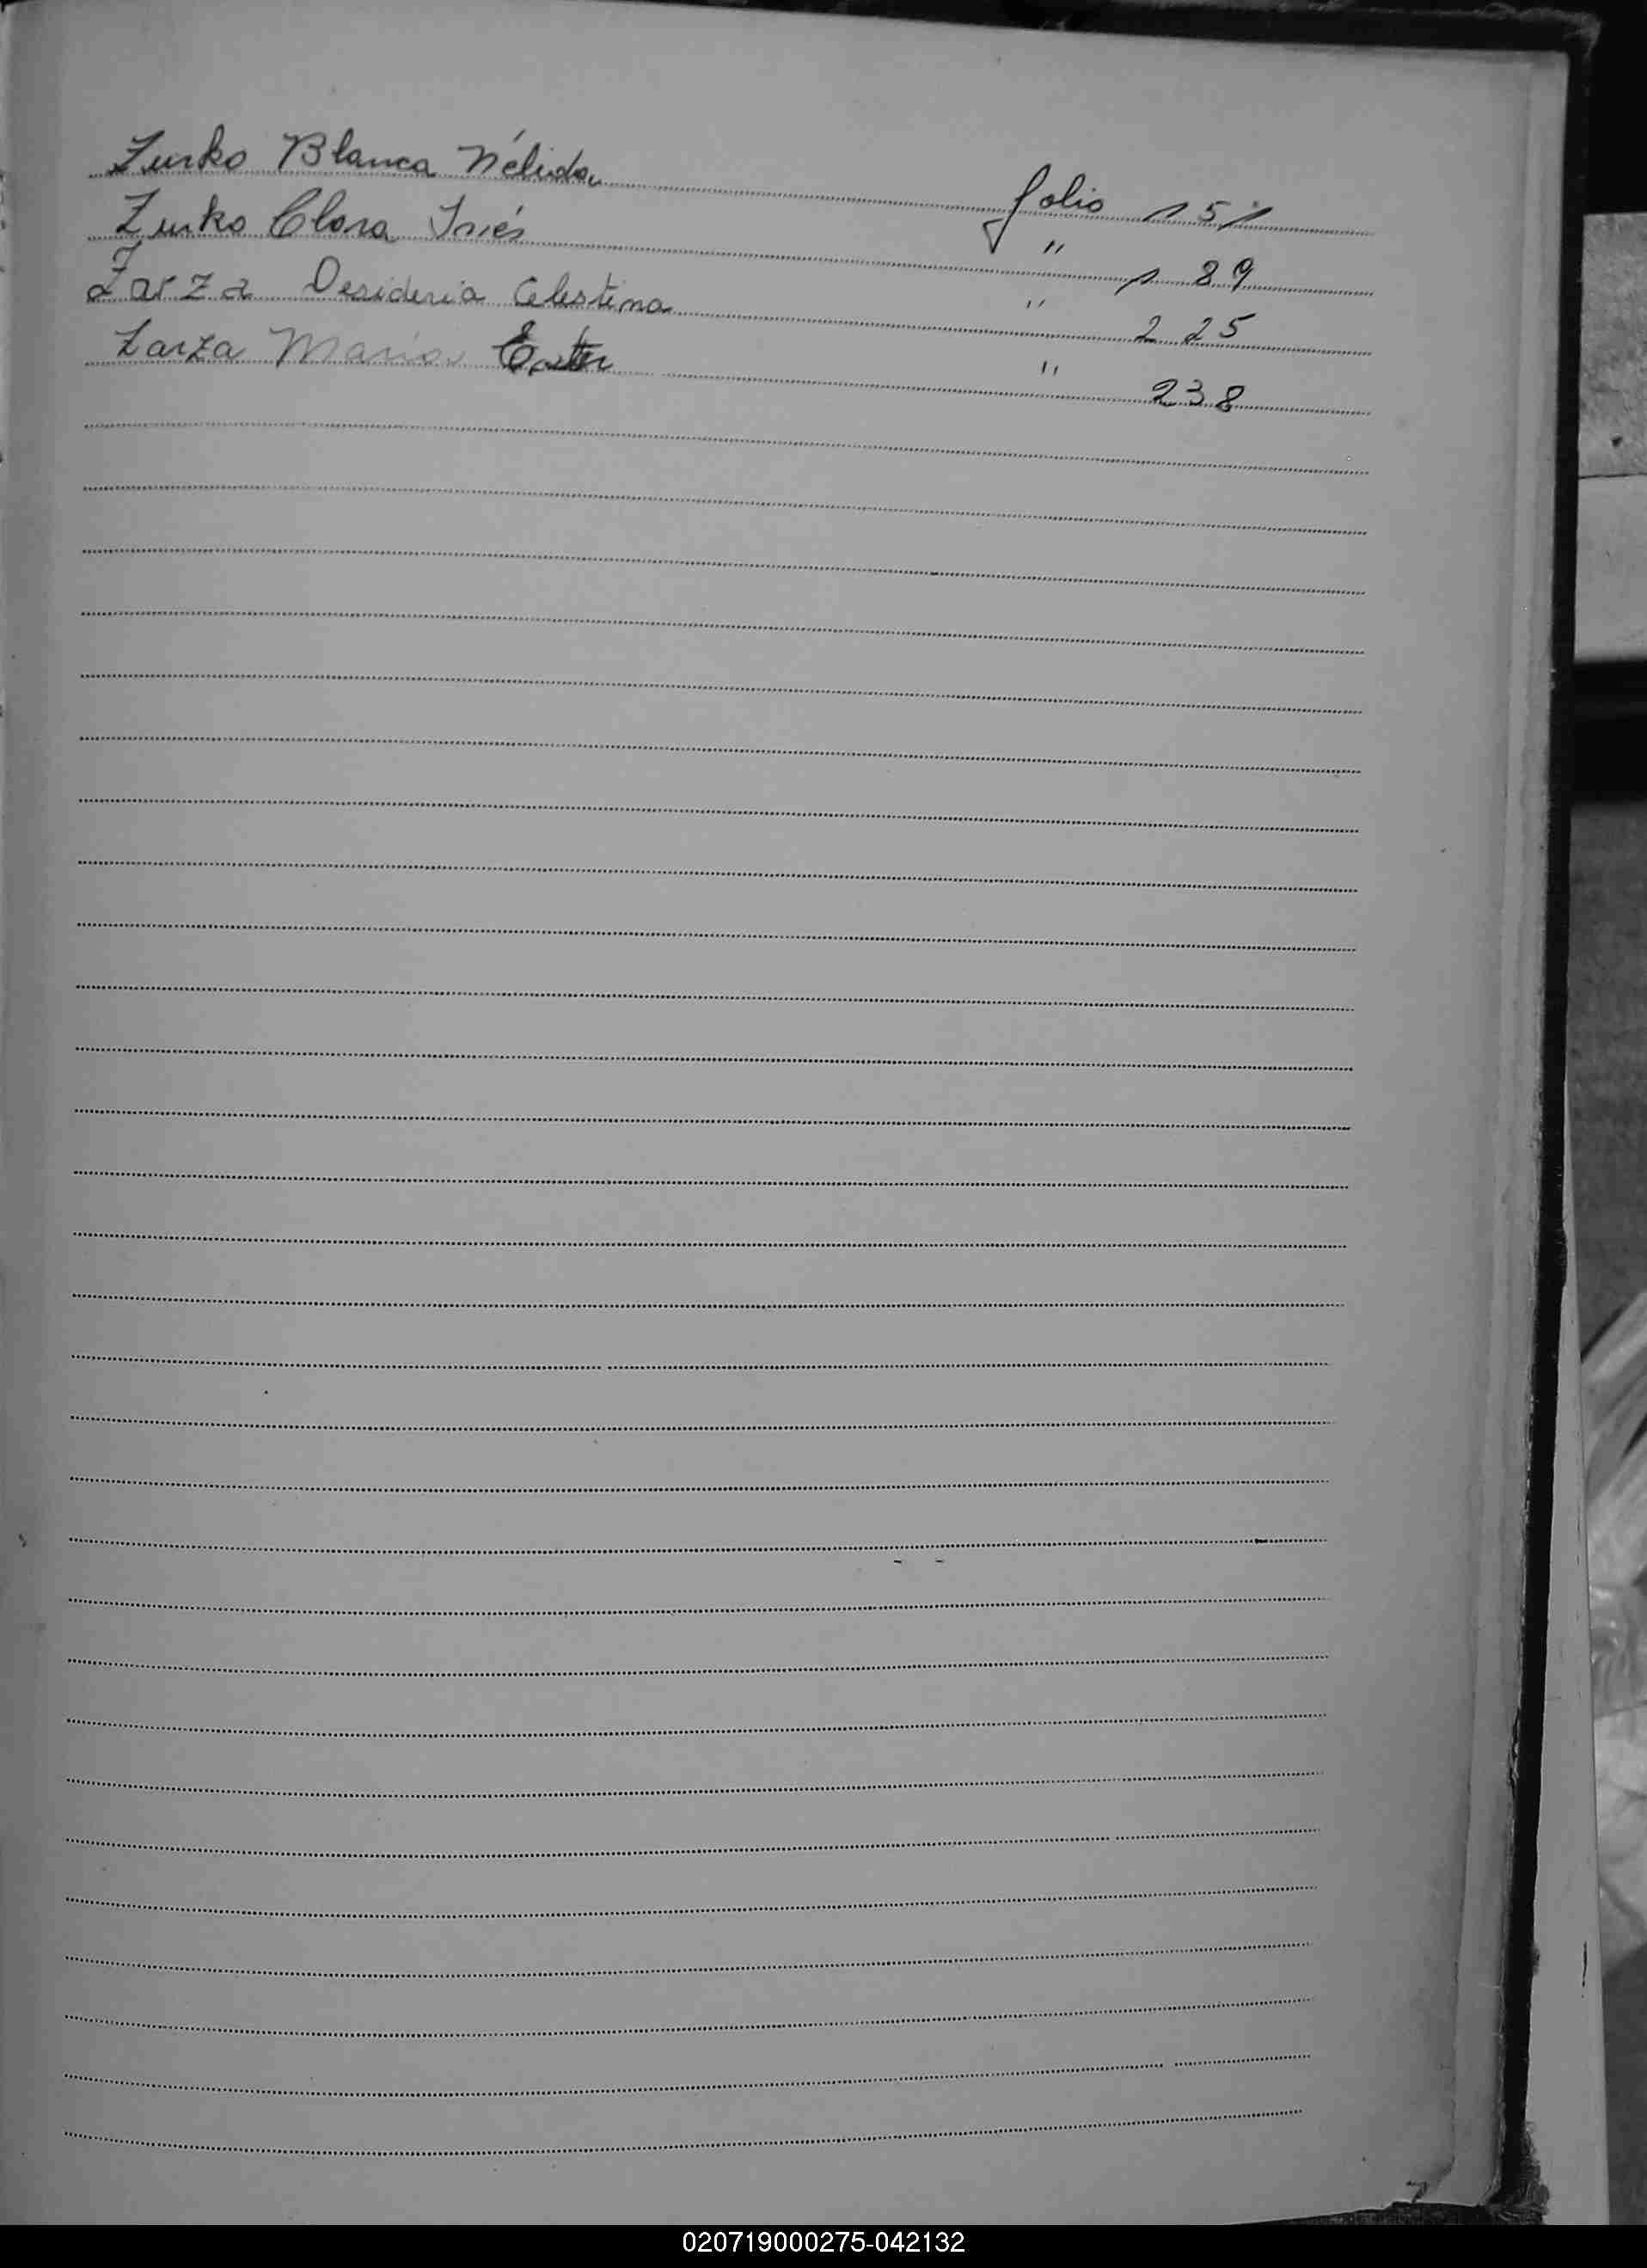 Zurko Blanca Nélida folio 151
Zurko Clara Inés " 189
Zarza Desideria Celestina " 225
Zarza Maria Ester " 238
020719000275-042132